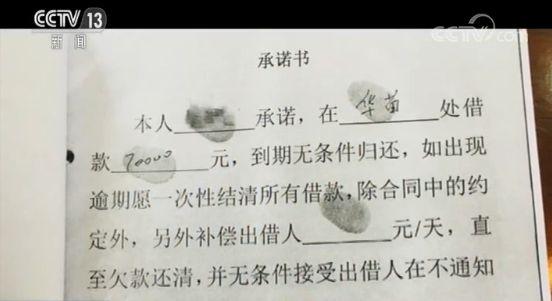 CCTV 13
新闻
CCTV.com
承诺书
本人______承诺，在华苗处借
款70000元，到期无条件归还，如出现
逾期愿一次性结清所有借款，除合同中的约
定外，另外补偿出借人______元/天，直
至欠款还清，并无条件接受出借人在不通知